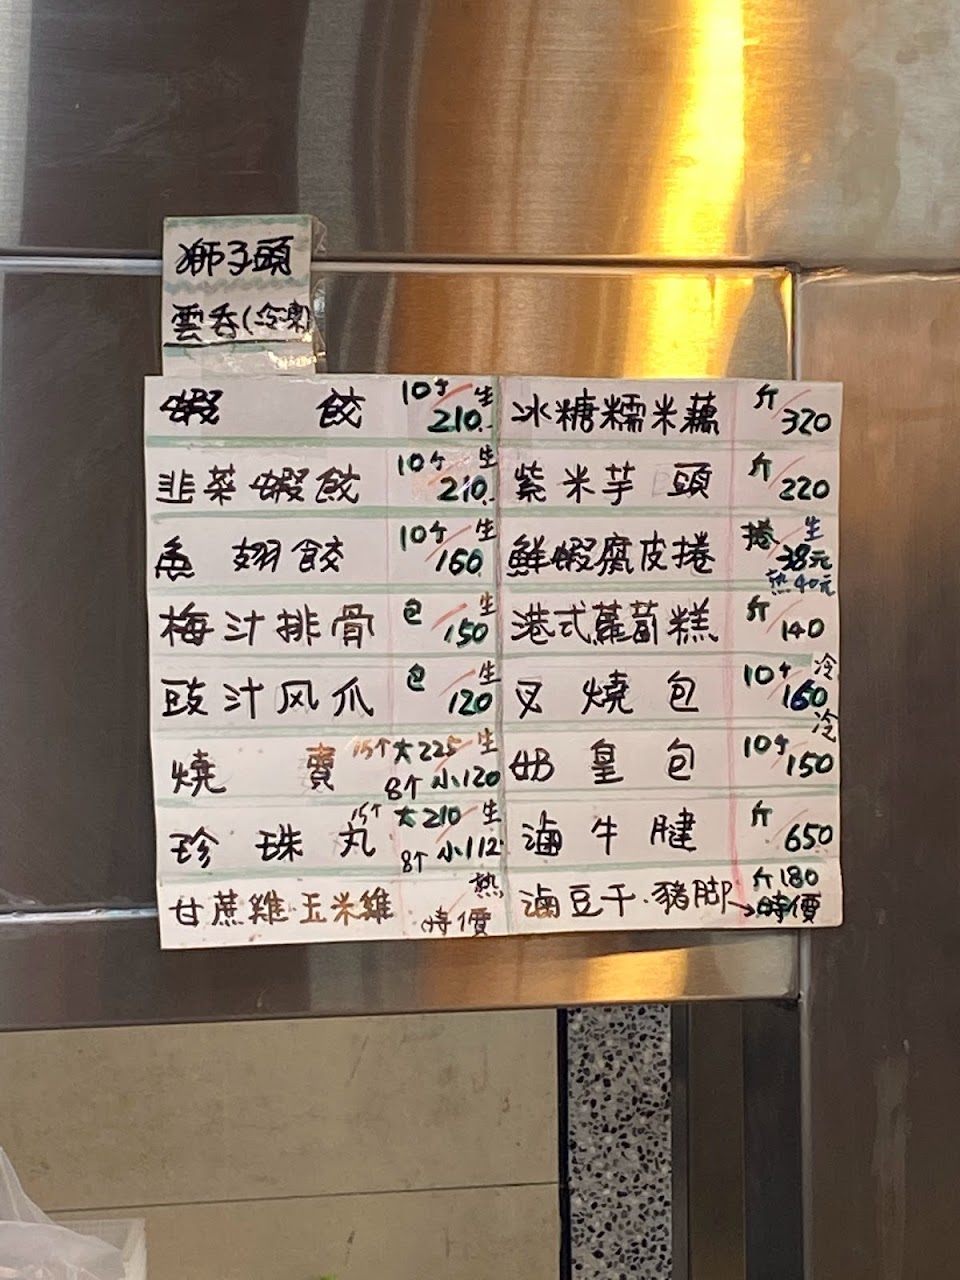 獅子頭
雲吞(冷凍)
蝦餃 10个/210.- 生
韭菜蝦餃 10个/210.- 生
魚翅餃 10个/160 生
梅汁排骨 包/150 生
豉汁风爪 包/120 生
燒賣 15个大225 生
8个小120
珍珠丸 15个大210 生
8个小112
甘蔗雞·玉米雞 熱
時價
冰糖糯米藕 斤/320
紫米芋頭 斤/220
鮮蝦腐皮捲 捲/生38元
熱40元
港式蘿蔔糕 斤/140
叉燒包 10个/160 冷
奶皇包 10个/150 冷
滷牛腱 斤/650
滷豆干·豬脚→時價
斤180